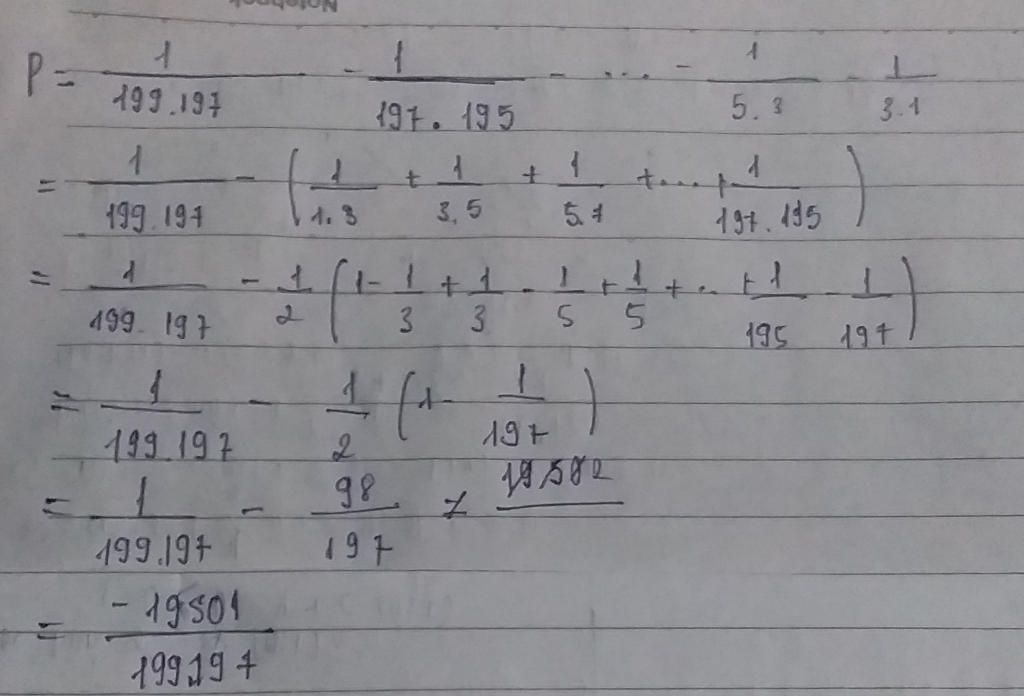 Notebook
P = 1/199.197 - 1/197.195 - ... - 1/5.3 - 1/3.1
= 1/199.197 - (1/1.3 + 1/3.5 + 1/5.7 + ... + 1/197.195)
= 1/199.197 - 1/2 (1 - 1/3 + 1/3 - 1/5 + 1/5 + .. + 1/195 - 1/197)
= 1/199.197 - 1/2 (1 - 1/197)
= 1/199.197 - 98/197
= -19501/199.197